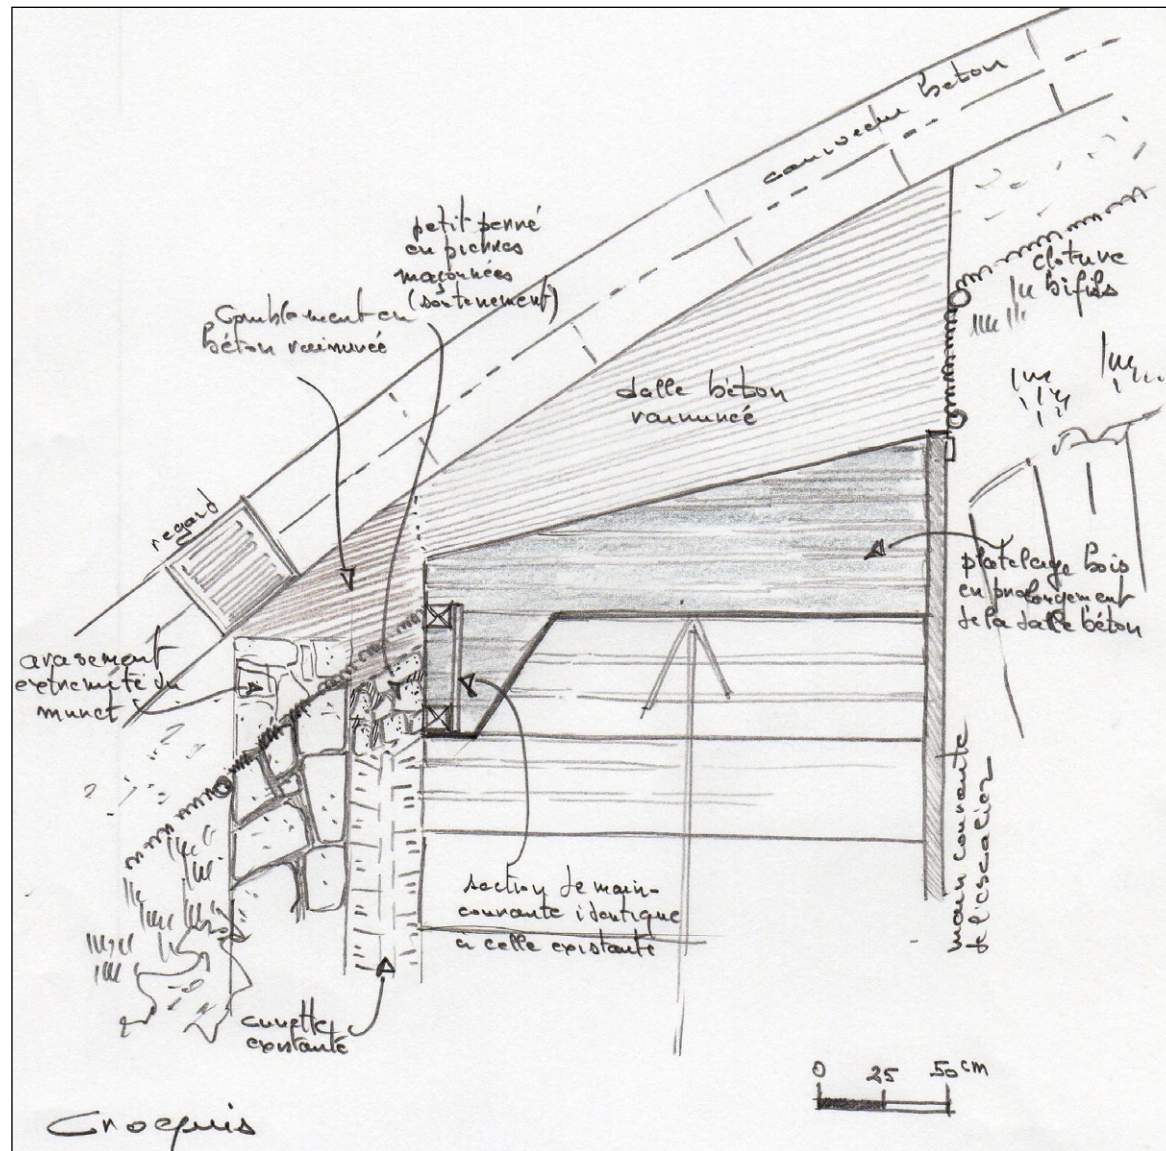 caniveau béton
petit perré
en pierres
maçonnées
(soutènement)
Comblement en
béton rainurée
clôture
bifils
dalle béton
rainurée
regard
platelage bois
en prolongement
de la dalle béton
arasement
extrémité du
muret
main courante
de l'escalier
section de main-
courante identique
à celle existante
cunette
existante
0 25 50 cm
Croquis